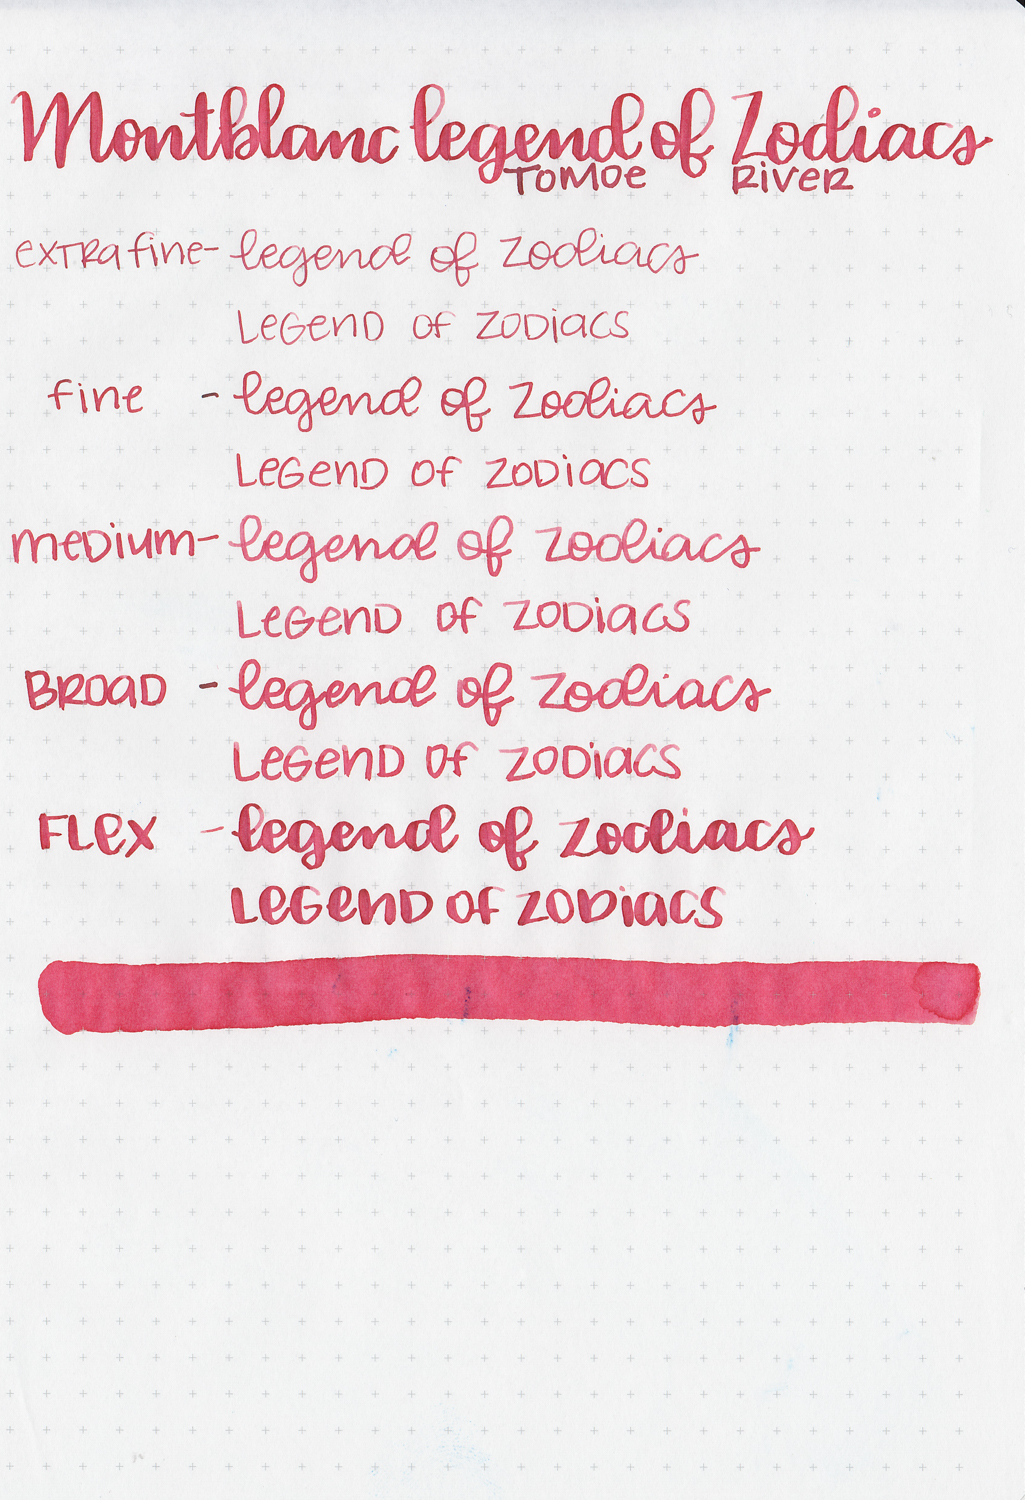 Montblanc legend of Zodiacs
Tomoe River
extra fine - legend of Zodiacs
Legend of Zodiacs
fine - legend of Zodiacs
Legend of Zodiacs
medium - legend of Zodiacs
Legend of Zodiacs
Broad - legend of Zodiacs
Legend of Zodiacs
Flex - legend of Zodiacs
Legend of Zodiacs